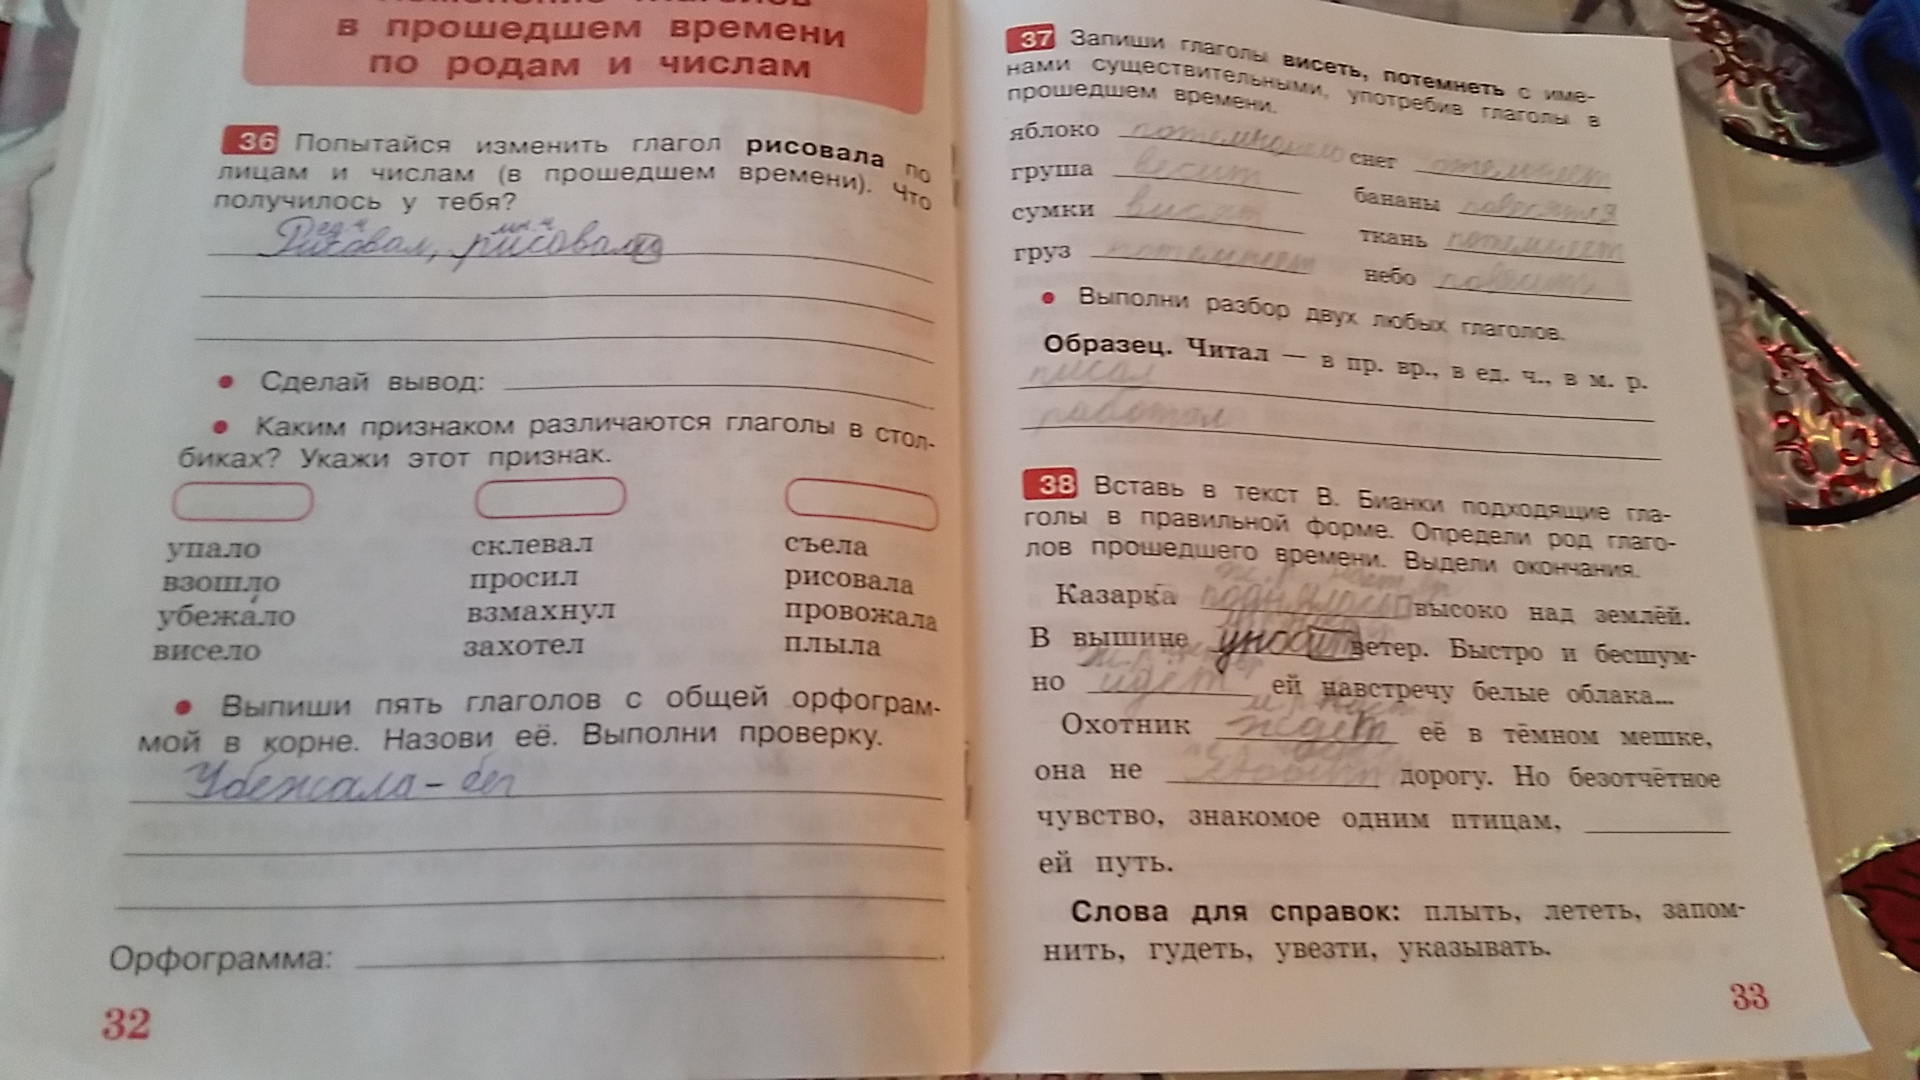 в прошедшем времени
по родам и числам
36 Попытайся изменить глагол рисовала по
лицам и числам (в прошедшем времени). Что
получилось у тебя?
ед. ч мн. ч
Рисовал, рисовали
Сделай вывод:
Каким признаком различаются глаголы в стол-
биках? Укажи этот признак.
упало склевал съела
взошло просил рисовала
убежало взмахнул провожала
висело захотел плыла
Выпиши пять глаголов с общей орфограм-
мой в корне. Назови её. Выполни проверку.
Убежала – бег
Орфограмма:
32
37 Запиши глаголы висеть, потемнеть с име-
нами существительными, употребив глаголы в
прошедшем времени.
яблоко снег
груша весит бананы
сумки висят ткань потемнеет
груз потемнеет небо
Выполни разбор двух любых глаголов.
Образец. Читал — в пр. вр., в ед. ч., в м. р.
писал
работал
38 Вставь в текст В. Бианки подходящие гла-
голы в правильной форме. Определи род глаго-
лов прошедшего времени. Выдели окончания.
Казарка поднялась высоко над землёй.
В вышине уносит ветер. Быстро и бесшум-
но идёт ей навстречу белые облака...
Охотник ждёт её в тёмном мешке,
она не дорогу. Но безотчётное
чувство, знакомое одним птицам,
ей путь.
Слова для справок: плыть, лететь, запом-
нить, гудеть, увезти, указывать.
33